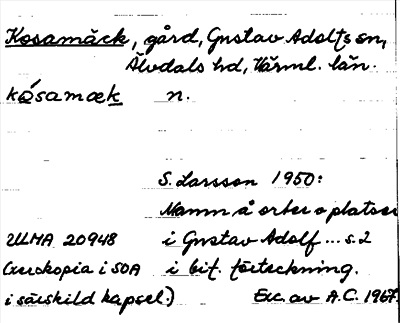 Kosamäck, gård, Gustav Adolfs sn,
Älvdals hd, Värml. län.
kósamæk n.
S. Larsson 1950:
Namn å orter o platser
ULMA 20948 i Gustav Adolf ... s. 2
(xerokopia i SOA i bif. förteckning.
i särskild kapsel.) Exc. av A.C. 1967.